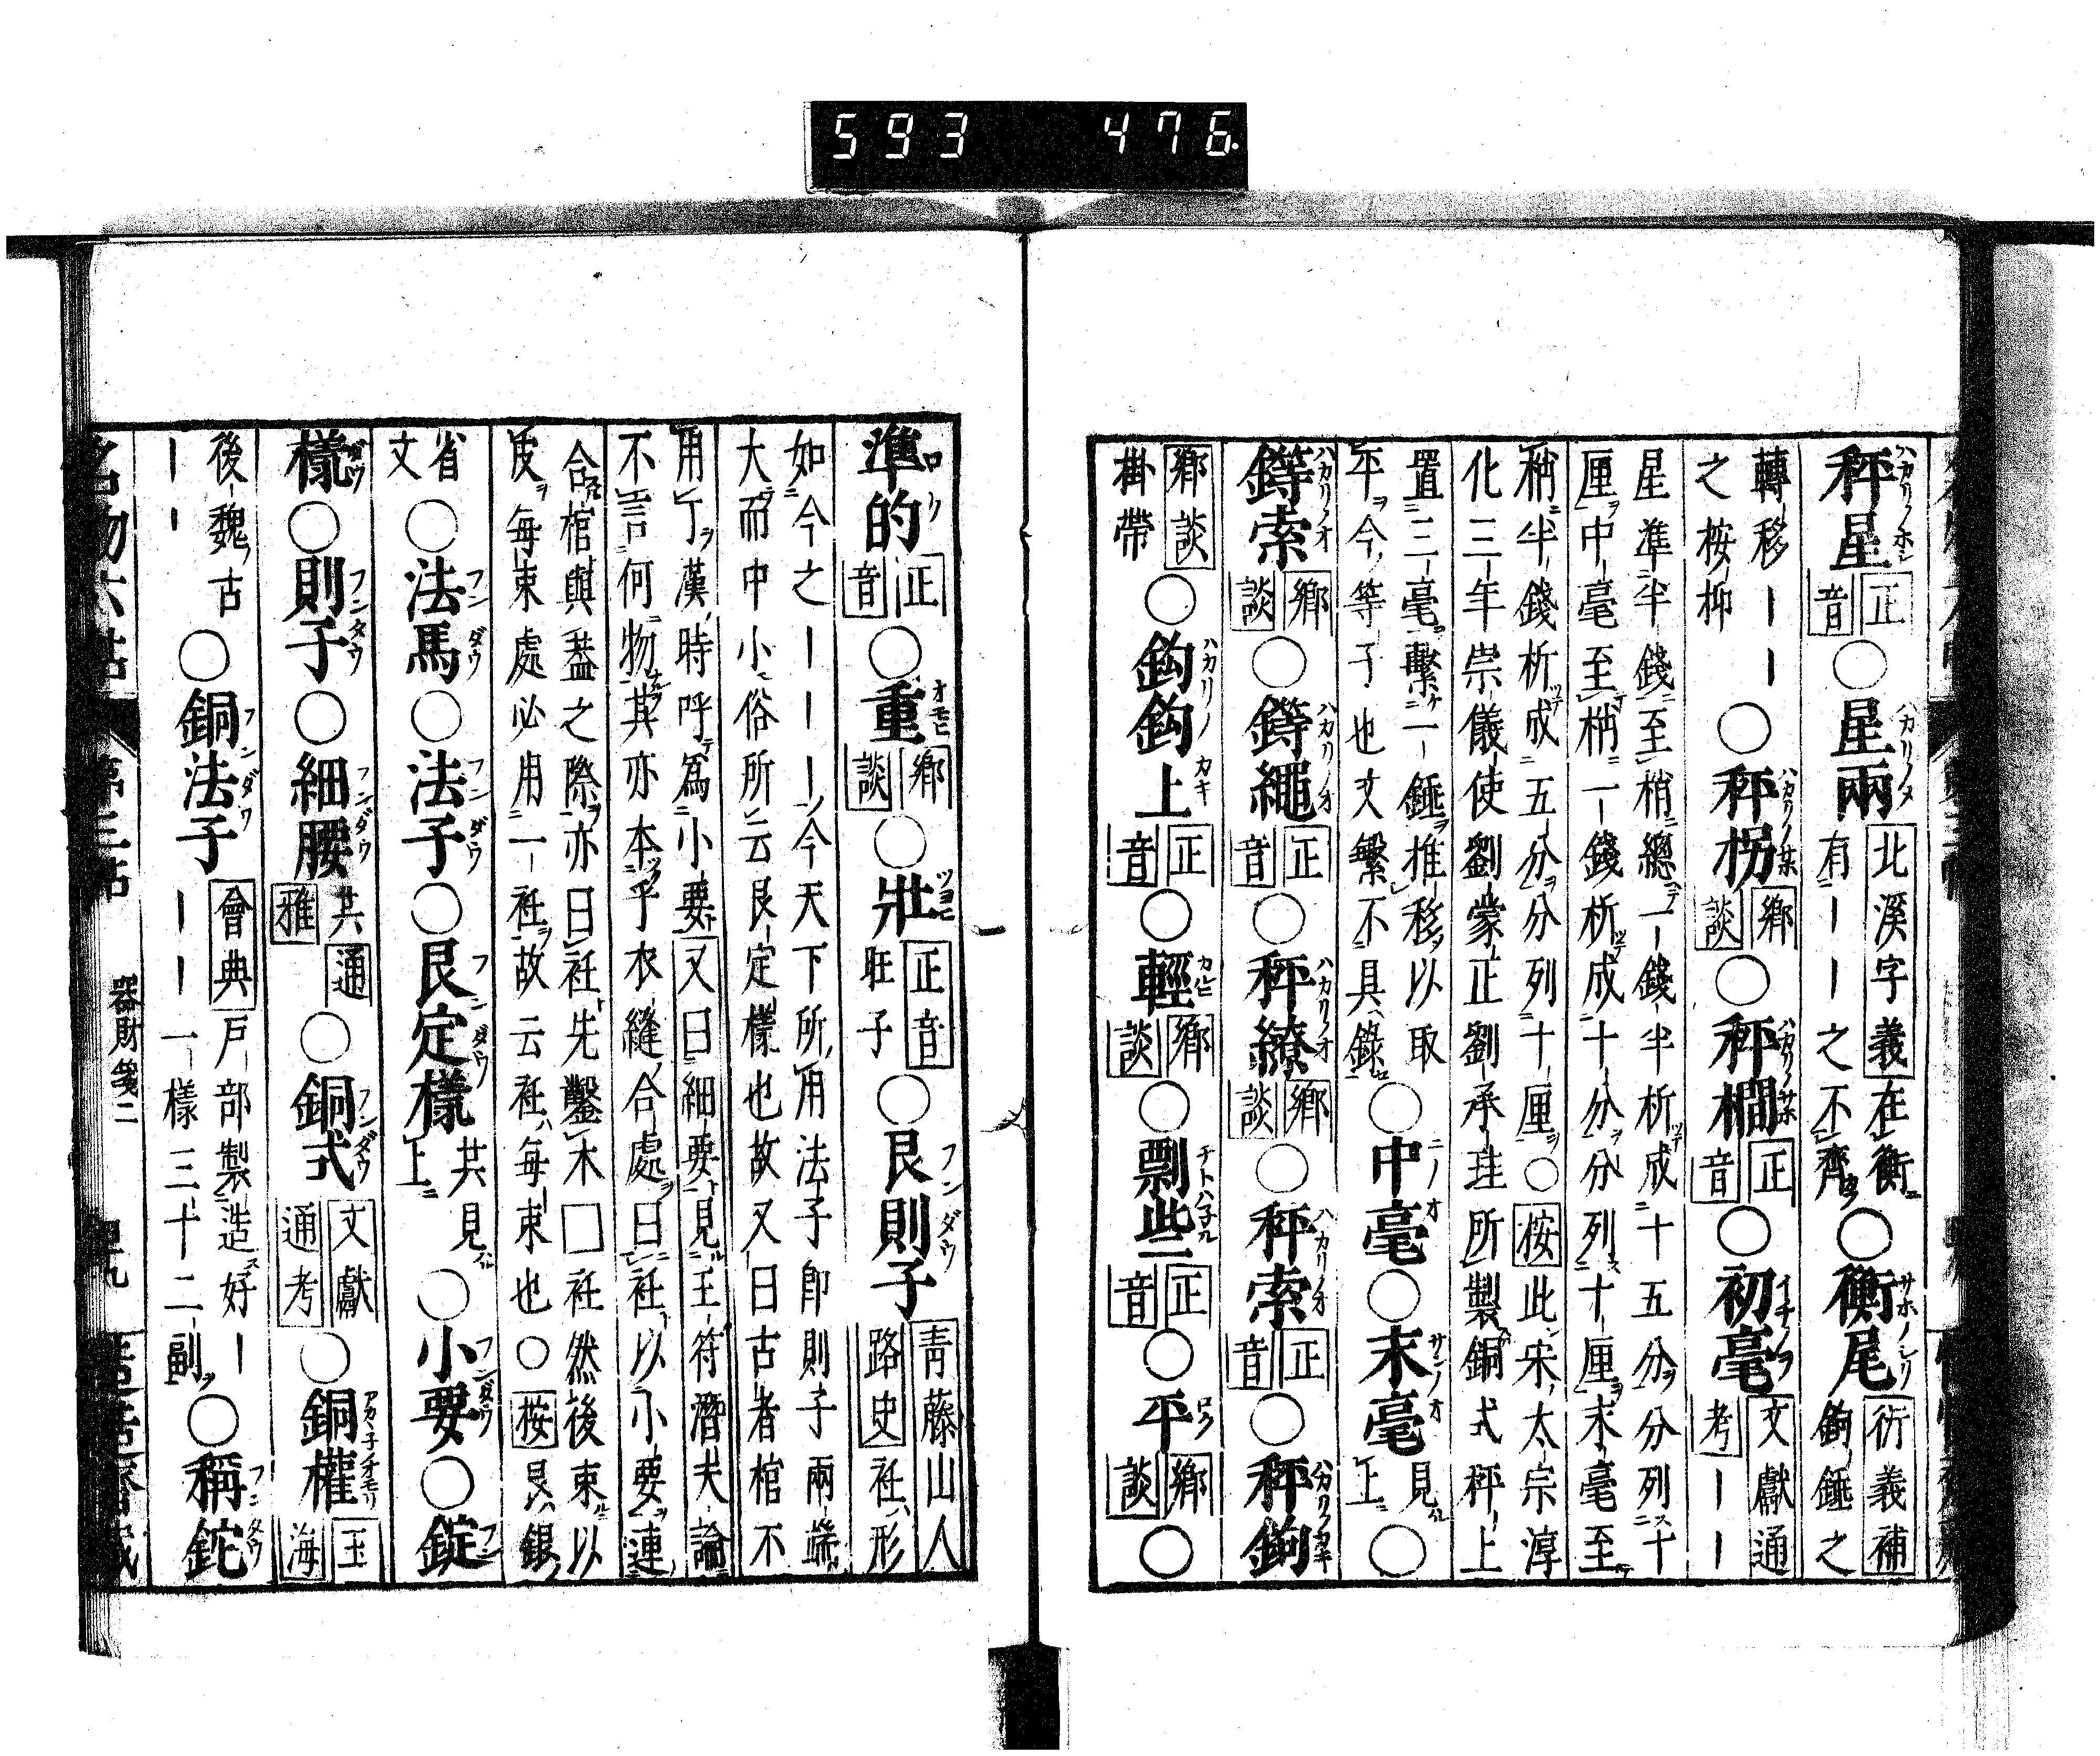 593 476
秤星 正音 ○星兩 北溪字義 在衡有｜｜之不齊 ○衡尾 衍義補 鉤錘之
轉移｜｜之按抑 ○秤拐 鄉談 ○秤櫚 正音 ○初毫 文獻通考 ｜｜
星準半錢至梢總一錢半析成十五分分列十
厘中毫至梢一錢析成十分分列十厘末毫至
梢半錢析成五分分列十厘○按此宋太宗淳
化三年崇儀使劉蒙正劉承珪所製銅式秤上
置三毫繫一錘推移以取平今等子也文繁不具錄 ○中毫 ○末毫 見上 ○
鐏索 鄉談 ○鐏繩 正音 ○秤繚 鄉談 ○秤索 正音 ○秤鉤
鄉談 掛帶 ○鈎鈎上 正音 ○輕 鄉談 ○剽些 正音 ○平 鄉談 ○
準的 正音 ○重 鄉談 ○壯 正音 旺子 ○艮則子 青藤山人路史 衽形
如今之｜｜｜今天下所用法子即則子兩端
大而中小俗所云艮定樣也故又曰古者棺不
用丁漢時呼爲小要又曰細要見王符潛夫論
不言何物其亦本乎衣縫合處曰衽以小要連
合棺與蓋之際亦曰衽先鑿木□衽然後束以
皮每束處必用一衽故云衽每束也○按艮銀
省文 ○法馬 ○法子 ○艮定樣 共見上 ○小要 ○錠
樣 ○則子 ○細腰 共通雅 ○銅式 文獻通考 ○銅權 玉海
後魏古｜｜ ○銅法子 會典 戶部製造好｜｜｜一樣三十二副 ○稱鉈
器財箋二